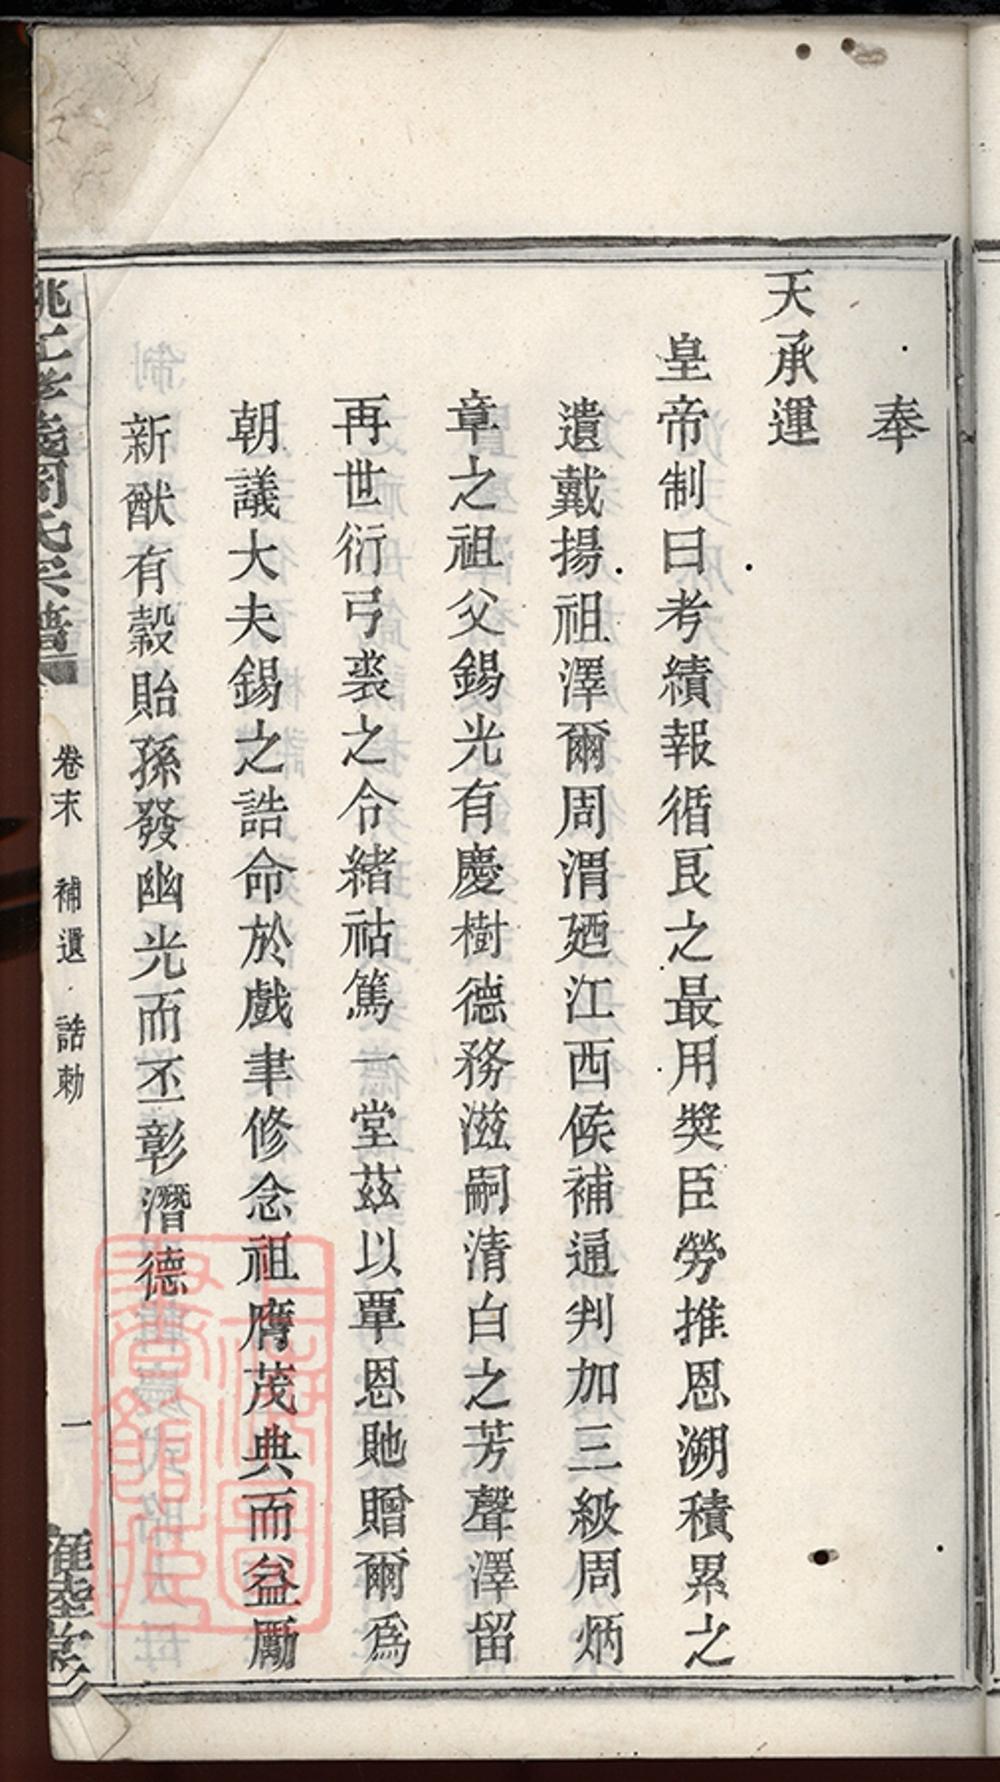 奉
天承運
皇帝制曰考績報循良之最用奬臣勞推恩溯積累之
遺戴揚祖澤爾周渭廼江西候補通判加三級周炳
章之祖父錫光有慶樹德務滋嗣清白之芳聲澤留
再世衍弓裘之令緒祜篤一堂茲以覃恩貤贈爾爲
朝議大夫錫之誥命於戲聿修念祖膺茂典而益勵
新猷有穀貽孫發幽光而丕彰潛德
姚江孝義周氏宗譜
卷末 補遺 誥勅
一
上海圖書館藏